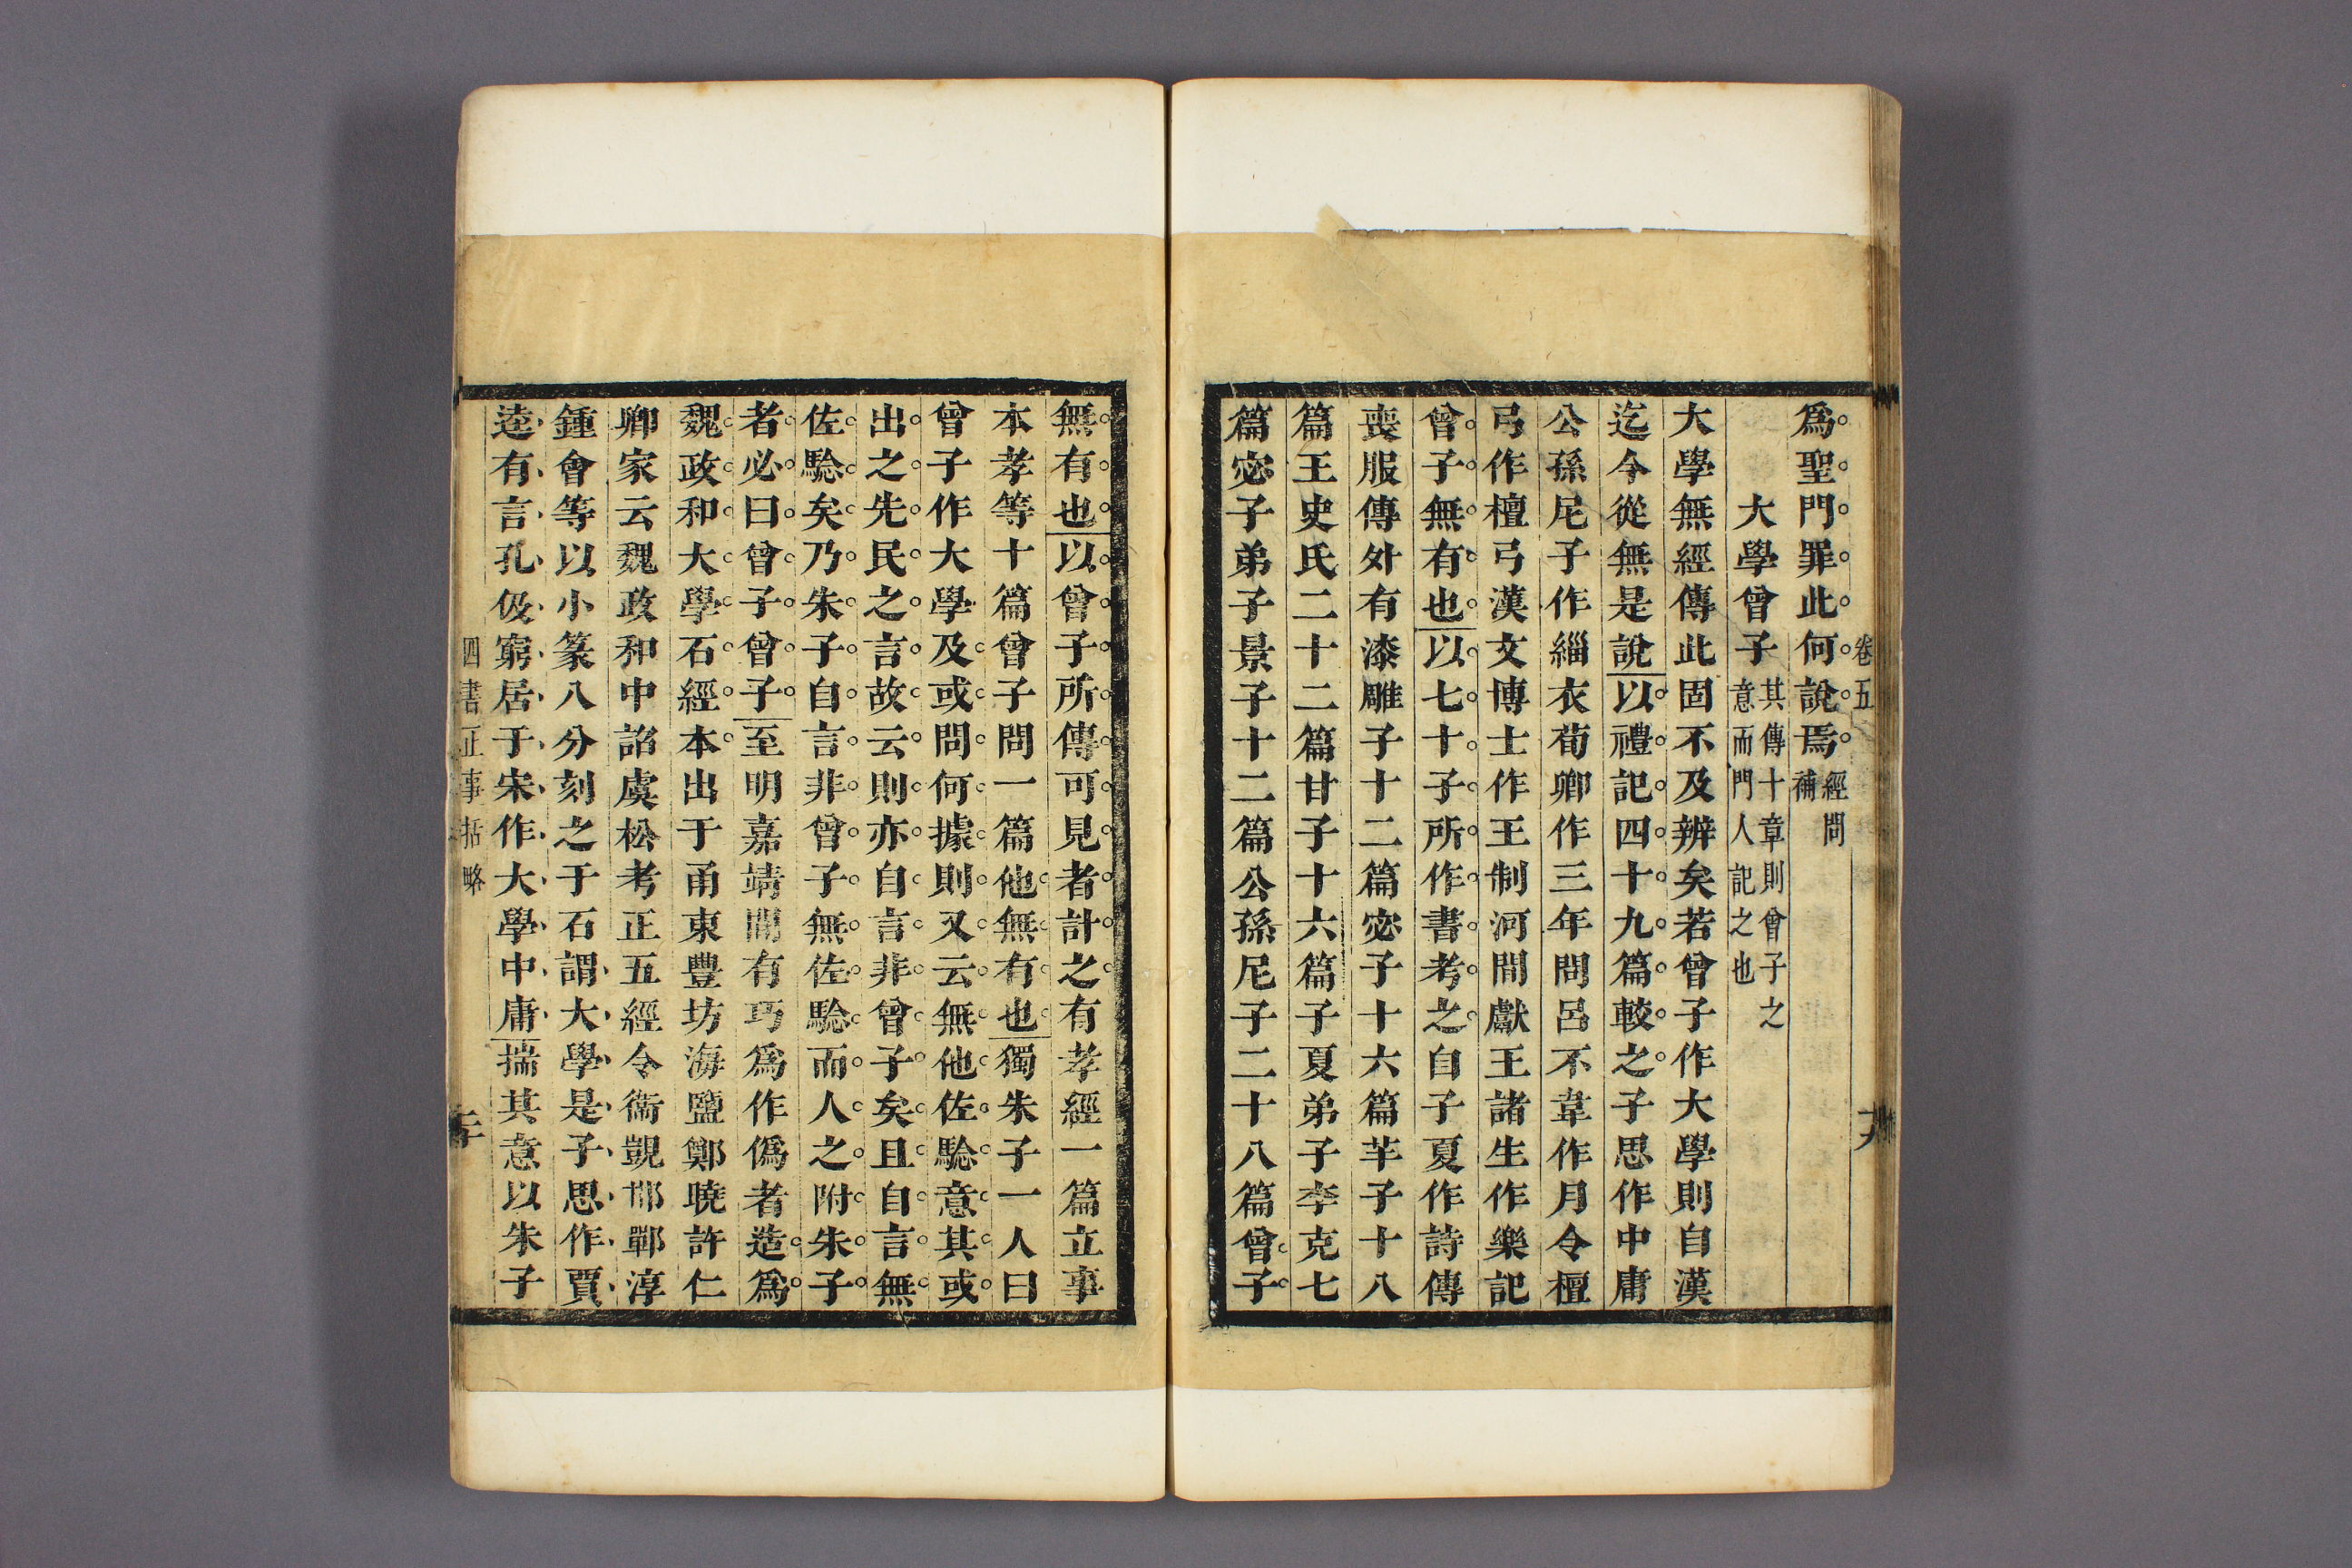 卷五
十九
爲聖門罪此何說焉經問補
大學曾子其傳十章則曾子之意而門人記之也
大學無經傳此固不及辨矣若曾子作大學則自漢
迄今從無是說以禮記四十九篇較之子思作中庸
公孫尼子作緇衣荀卿作三年問呂不韋作月令檀
弓作檀弓漢文博士作王制河間獻王諸生作樂記
曾子無有也以七十子所作書考之自子夏作詩傳
喪服傳外有漆雕子十二篇宓子十六篇芊子十八
篇王史氏二十二篇甘子十六篇子夏弟子李克七
篇宓子弟子景子十二篇公孫尼子二十八篇曾子
無有也以曾子所傳可見者計之有孝經一篇立事
本孝等十篇曾子問一篇他無有也獨朱子一人曰
曾子作大學及或問何據則又云無他佐驗意其或
出之先民之言故云則亦自言非曾子矣且自言無
佐驗矣乃朱子自言非曾子無佐驗而人之附朱子
者必曰曾子曾子至明嘉靖間有巧爲作僞者造爲
魏政和大學石經本出于甬東豐坊海鹽鄭曉許仁
卿家云魏政和中詔虞松考正五經令衞覬邯鄲淳
鍾會等以小篆八分刻之于石謂大學是子思作賈
逵有言孔伋窮居于宋作大學中庸揣其意以朱子
四書正事括略
二十